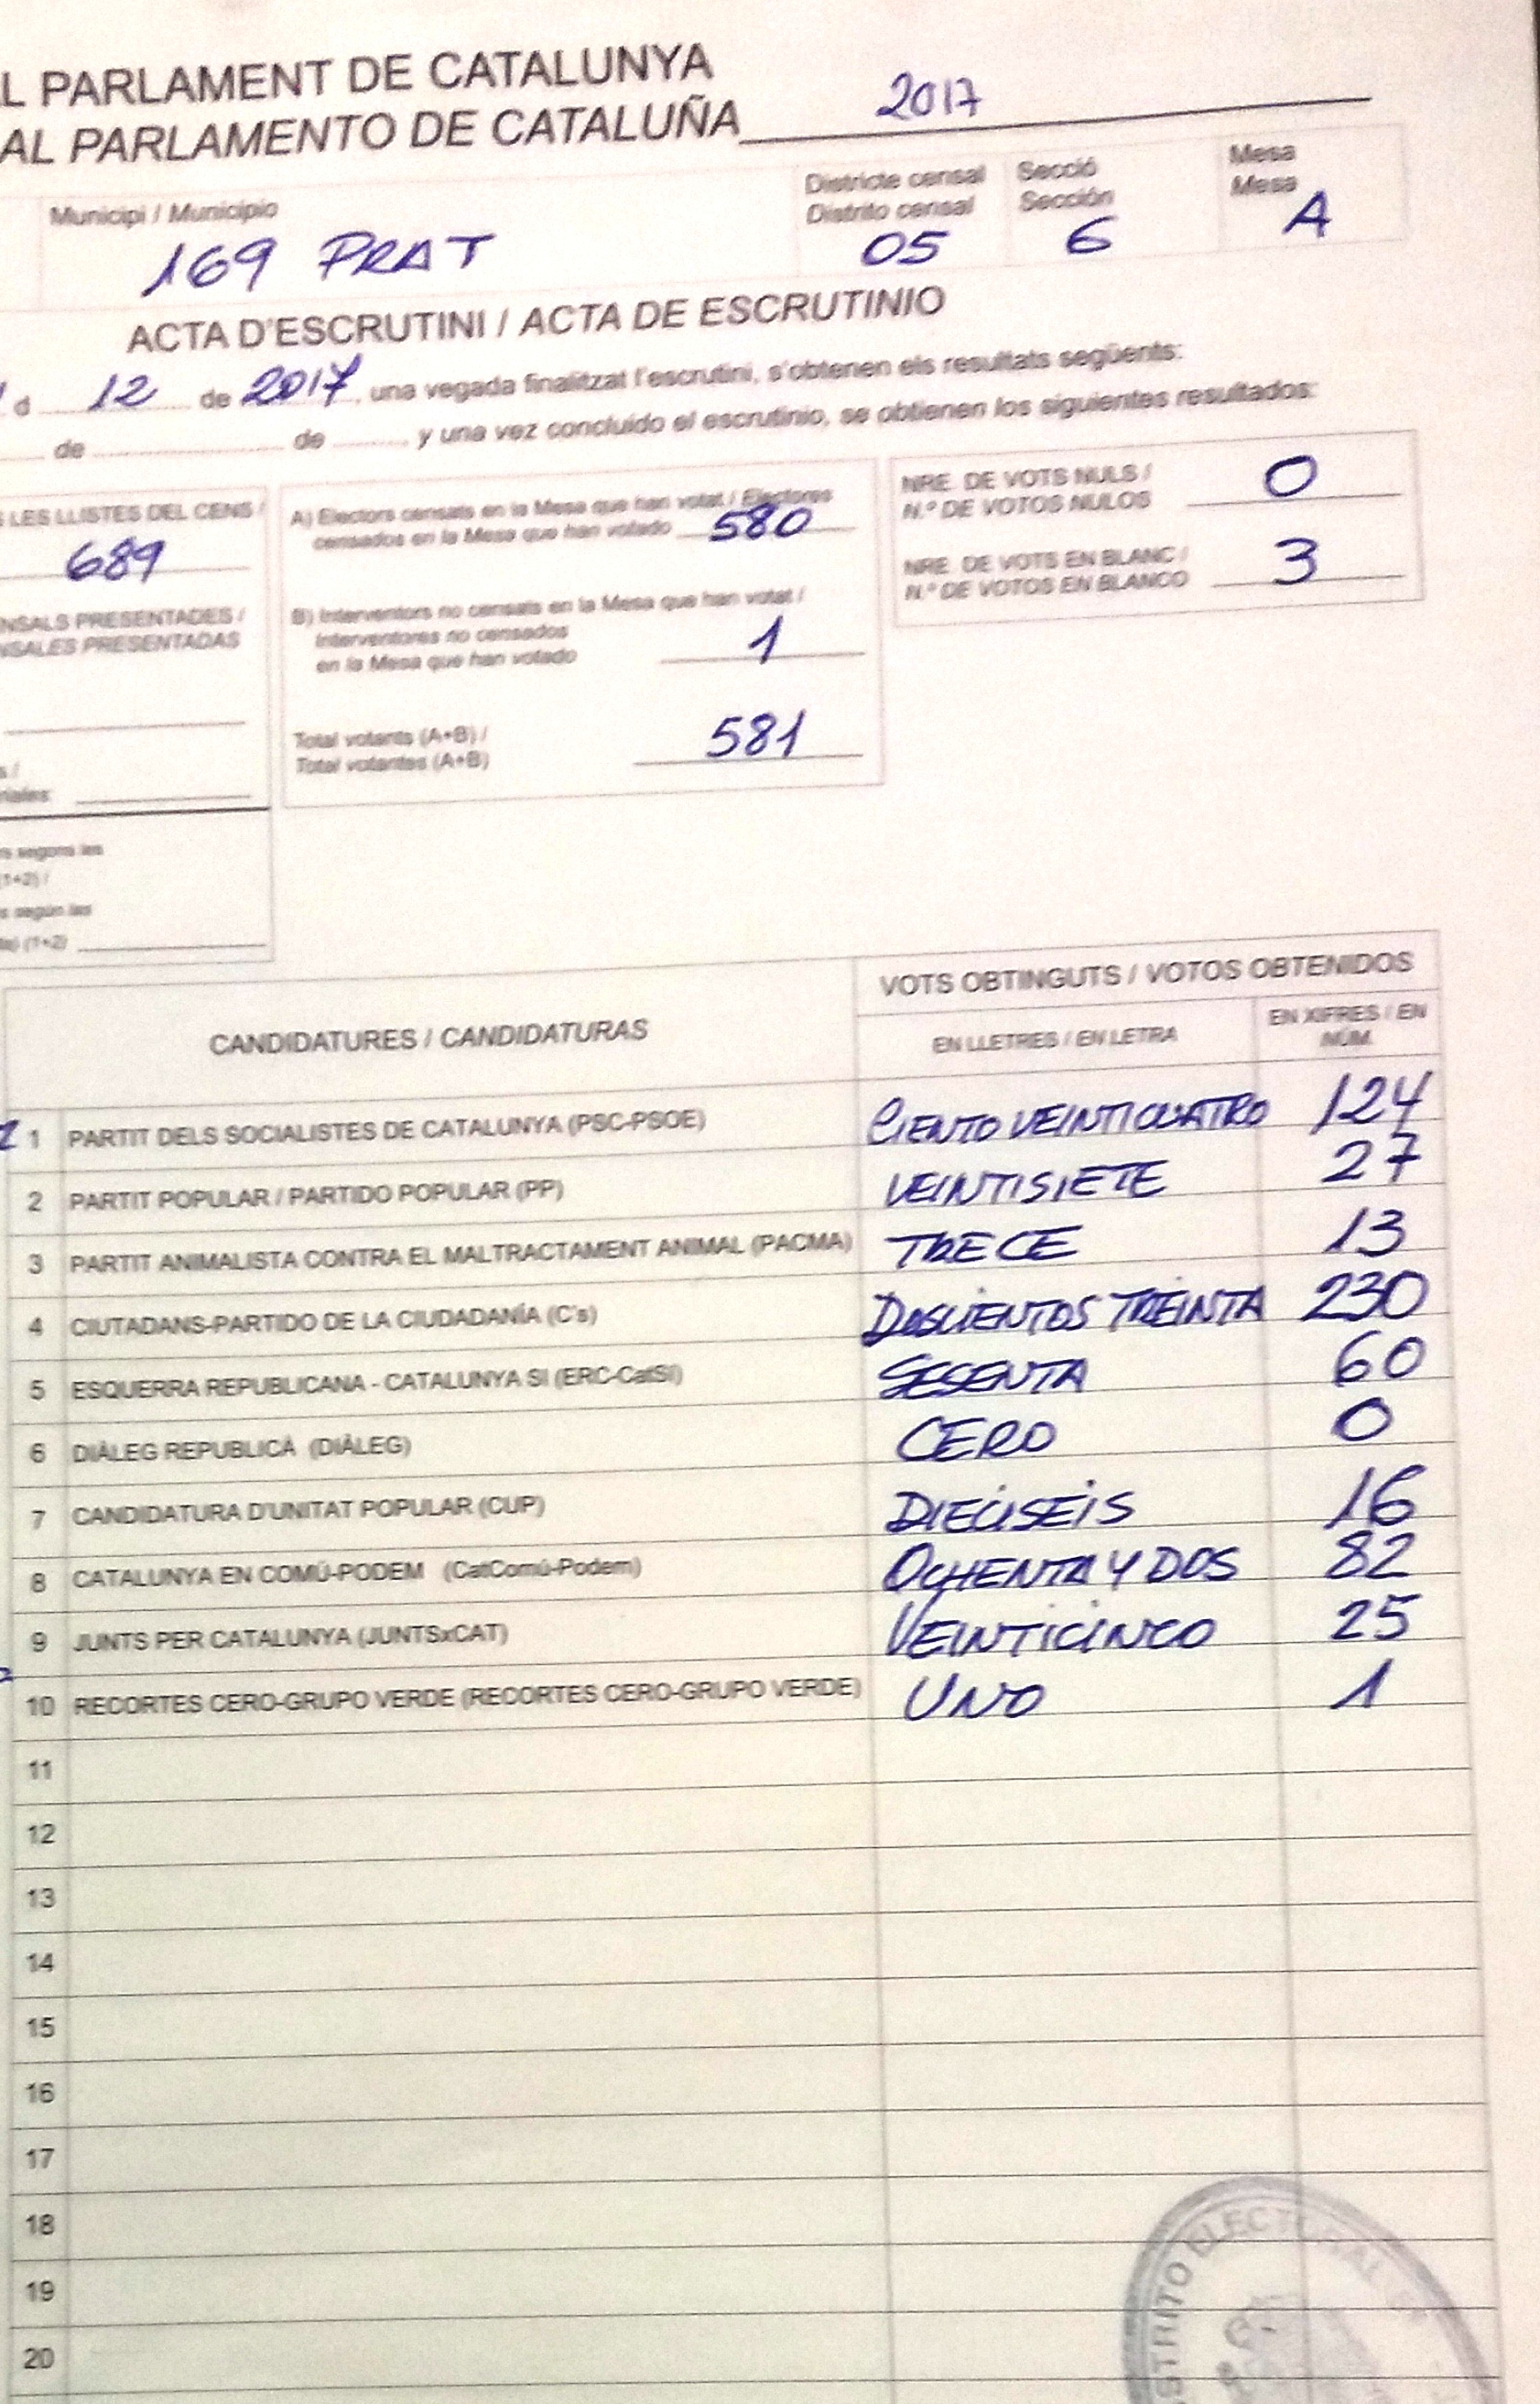 L PARLAMENT DE CATALUNYA
AL PARLAMENTO DE CATALUÑA 2017
Municipi / Municipio
169 PRAT
Districte censal
Distrito censal
05
Secció
Sección
6
Mesa
Mesa
A
ACTA D'ESCRUTINI / ACTA DE ESCRUTINIO
d 12 de 2017, una vegada finalitzat l'escrutini, s'obtenen els resultats següents:
de de , y una vez concluido el escrutinio, se obtienen los siguientes resultados:
LES LLISTES DEL CENS /
689
NSALS PRESENTADES /
NSALES PRESENTADAS
s /
riales:
rs segons les
(1+2) /
s según las
(1+2)
A) Electors censats en la Mesa que han votat / Electores
censados en la Mesa que han votado 580
B) Interventors no censats en la Mesa que han votat /
Interventores no censados
en la Mesa que han votado 1
Total votants (A+B) /
Total votantes (A+B) 581
NRE. DE VOTS NULS /
N.º DE VOTOS NULOS 0
NRE. DE VOTS EN BLANC /
N.º DE VOTOS EN BLANCO 3
CANDIDATURES / CANDIDATURAS
VOTS OBTINGUTS / VOTOS OBTENIDOS
EN LLETRES / EN LETRA
EN XIFRES / EN
NÚM.
1 PARTIT DELS SOCIALISTES DE CATALUNYA (PSC-PSOE) CIENTO VEINTICUATRO 124
2 PARTIT POPULAR / PARTIDO POPULAR (PP) VEINTISIETE 27
3 PARTIT ANIMALISTA CONTRA EL MALTRACTAMENT ANIMAL (PACMA) TRECE 13
4 CIUTADANS-PARTIDO DE LA CIUDADANÍA (C's) DOSCIENTOS TREINTA 230
5 ESQUERRA REPUBLICANA - CATALUNYA SI (ERC-CatSI) SESENTA 60
6 DIÀLEG REPUBLICÀ (DIÀLEG) CERO 0
7 CANDIDATURA D'UNITAT POPULAR (CUP) DIECISEIS 16
8 CATALUNYA EN COMÚ-PODEM (CatComú-Podem) OCHENTA Y DOS 82
9 JUNTS PER CATALUNYA (JUNTSxCAT) VEINTICINCO 25
10 RECORTES CERO-GRUPO VERDE (RECORTES CERO-GRUPO VERDE) UNO 1
11
12
13
14
15
16
17
18
19
20
STRITO ELECTORAL